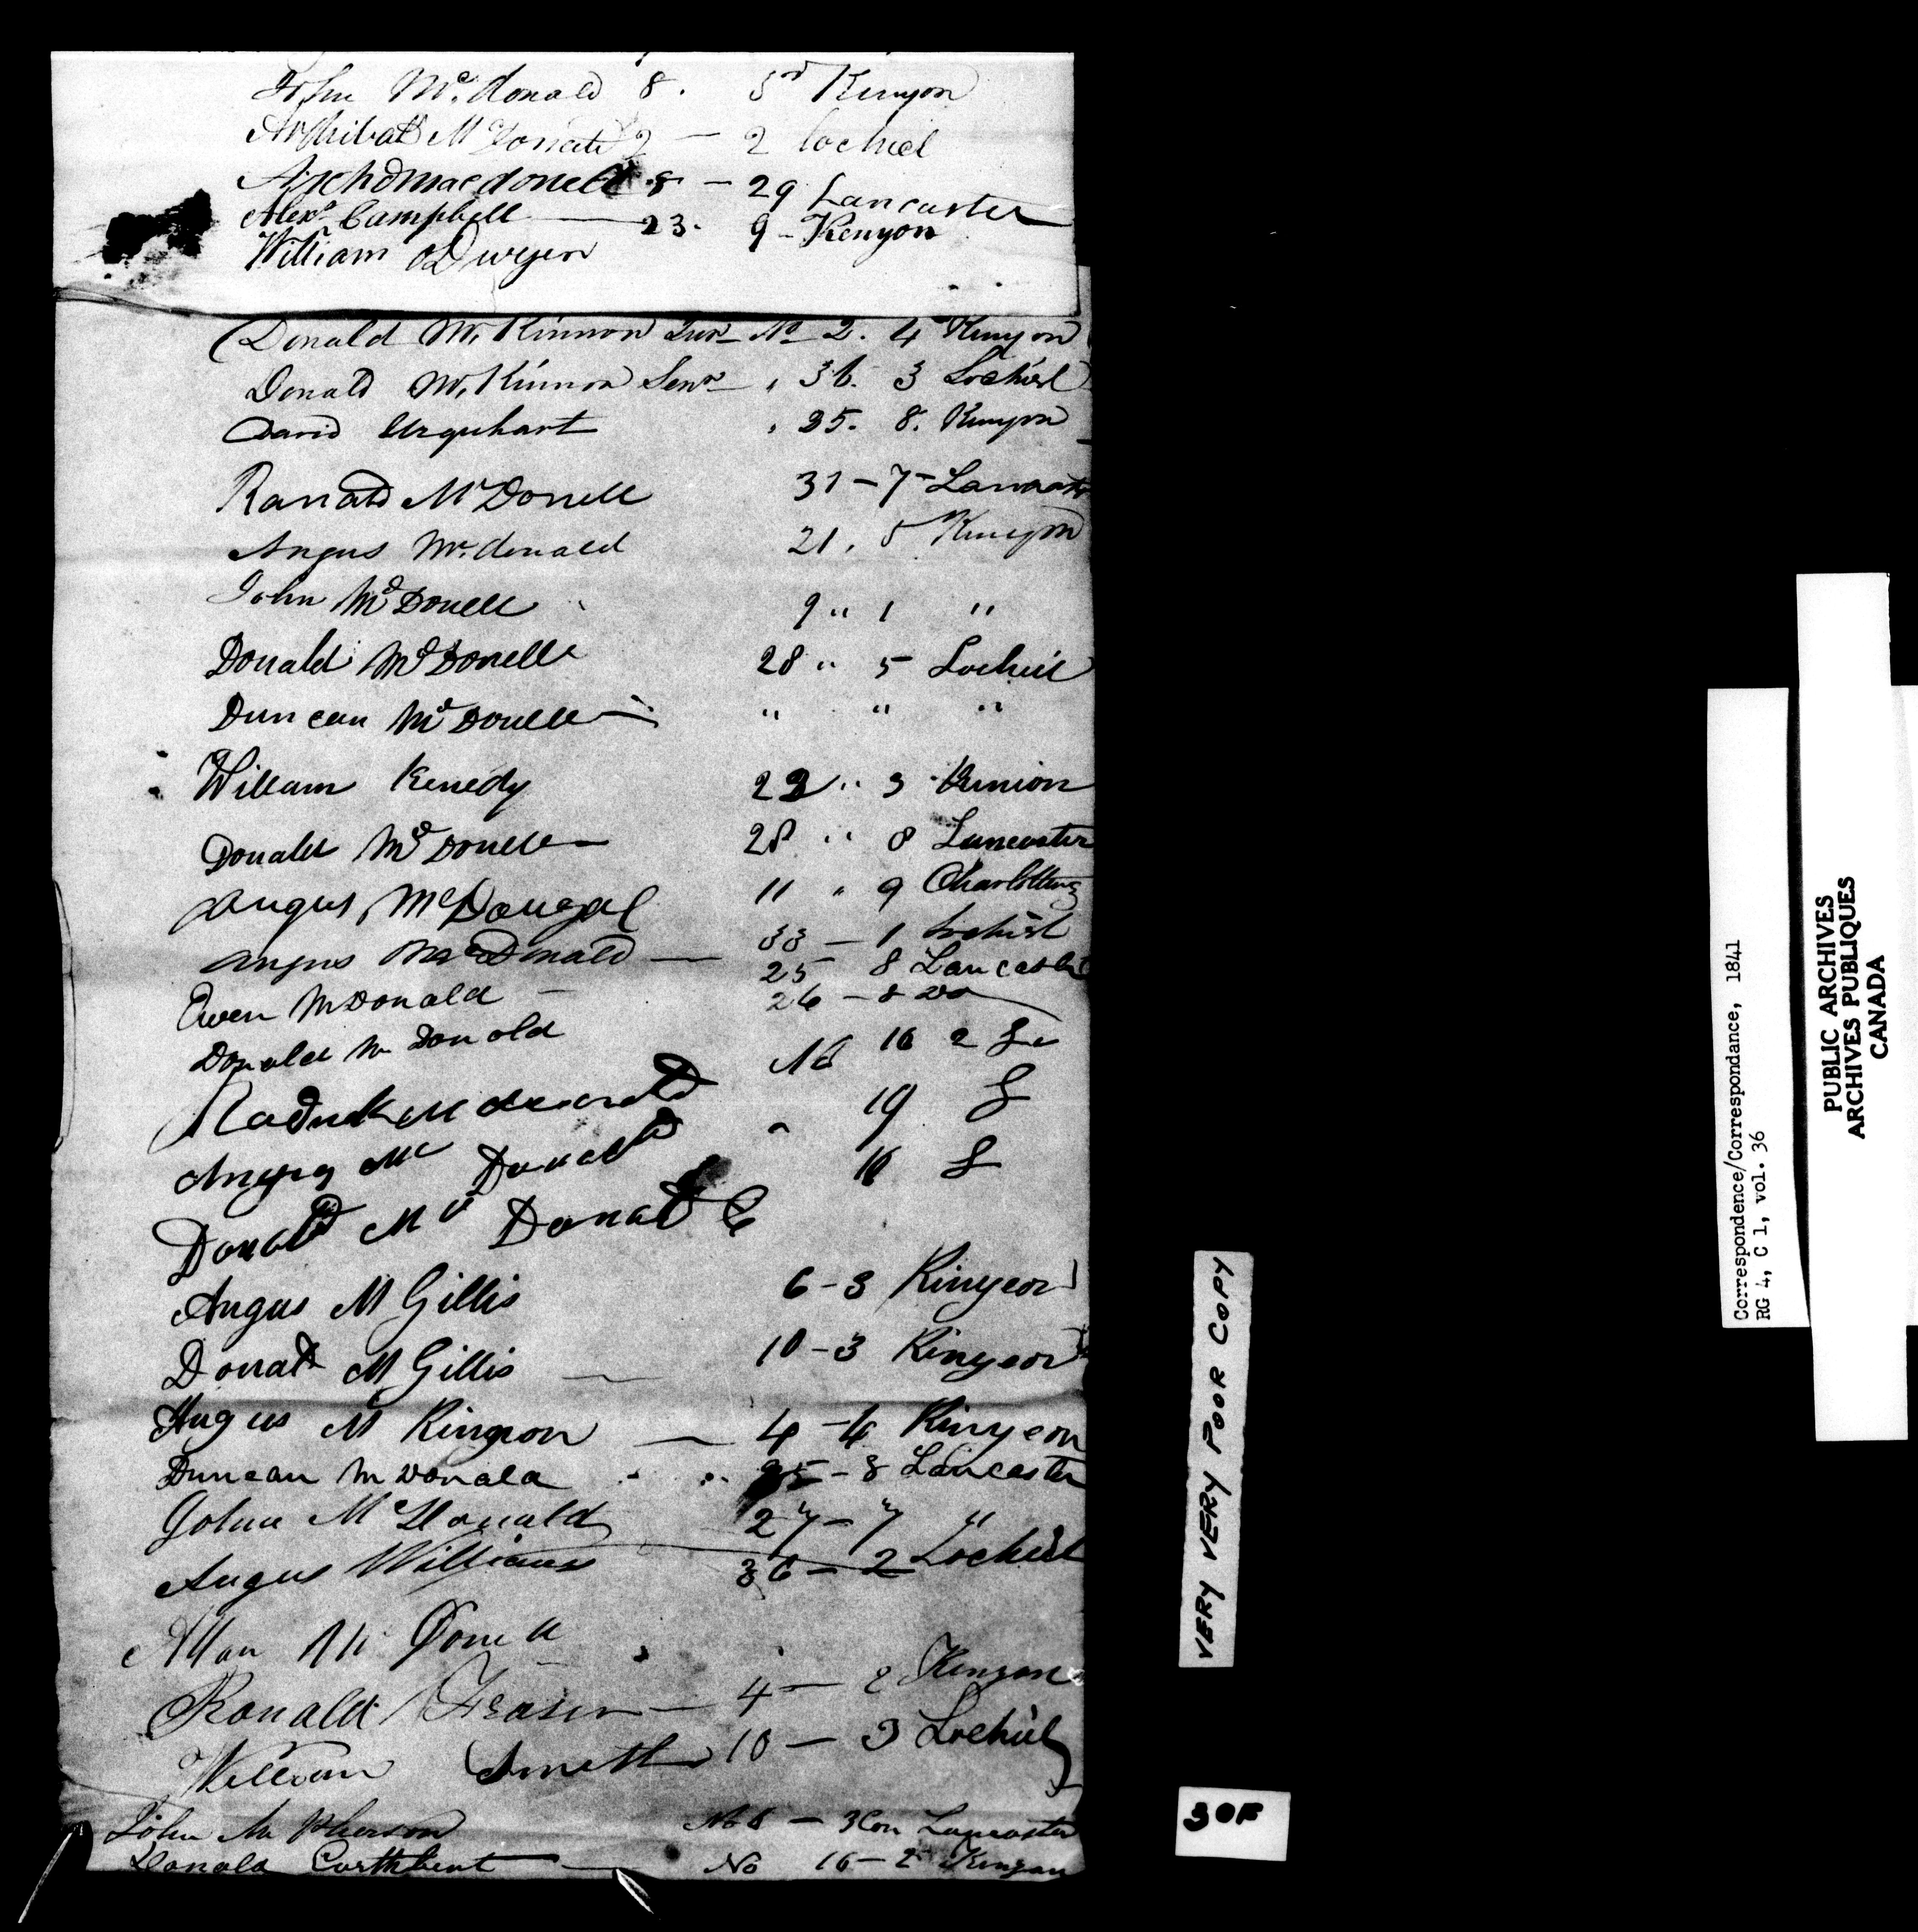 John Mc. donald 8. 5th Kenyon
Archibald McDonald 2 — 2 Lochiel
Archd Macdonell 8 — 29 Lancaster
Alexr Campbell — 23. 9 - Kenyon
William O Dwyer
Donald Mc Kinnon Junr No 2. 4 Kenyon
Donald Mc Kinnon Senr " 36. 3 Lochiel
David Urquhart " 35. 8. Kenyon
Ranald McDonell 31 - 7 - Lancaster
Angus Mc.donald 21, 5 Kenyon
John McDonell 9 " 1 "
Donald McDonell 28 " 5 Lochiel
Duncan McDonell — " " "
William Kenedy 22 " 3 Kenion
Donald McDonell — 28 " 8 Lancaster
Angus McDougal 11 " 9 Charlotteng
Angus McDonald — 33 — 1 Lochiel
Owen McDonald — 25 8 Lancaster
Donald Mc Donald 26 - 8 Do
No 16 2 L
Angus Mc Donald 19 L
Donald Mc Donald 16 L
Angus M Gillis 6 - 3 Kinyeon
Donald M Gillis — 10 - 3 Kinyeon
Angus M Kinnon — 4 - 4 Kinyeon
Duncan Mc Donald 35 - 8 Lancaster
John McDonald 27 - 7 "
Angus Williams 36 - 2 Lochiel
Allan Mc Donell
Ronald Fraser — 4 — 2 Kenyon
William Smith 10 — 3 Lochiel
John Mc Pherson No 8 — 3 Con Lancaster
Donald Curthbert — No 16 - 2 Kenyon
VERY VERY POOR COPY
30F
Correspondence/Correspondance, 1841
RG 4, C 1, vol. 36
PUBLIC ARCHIVES
ARCHIVES PUBLIQUES
CANADA